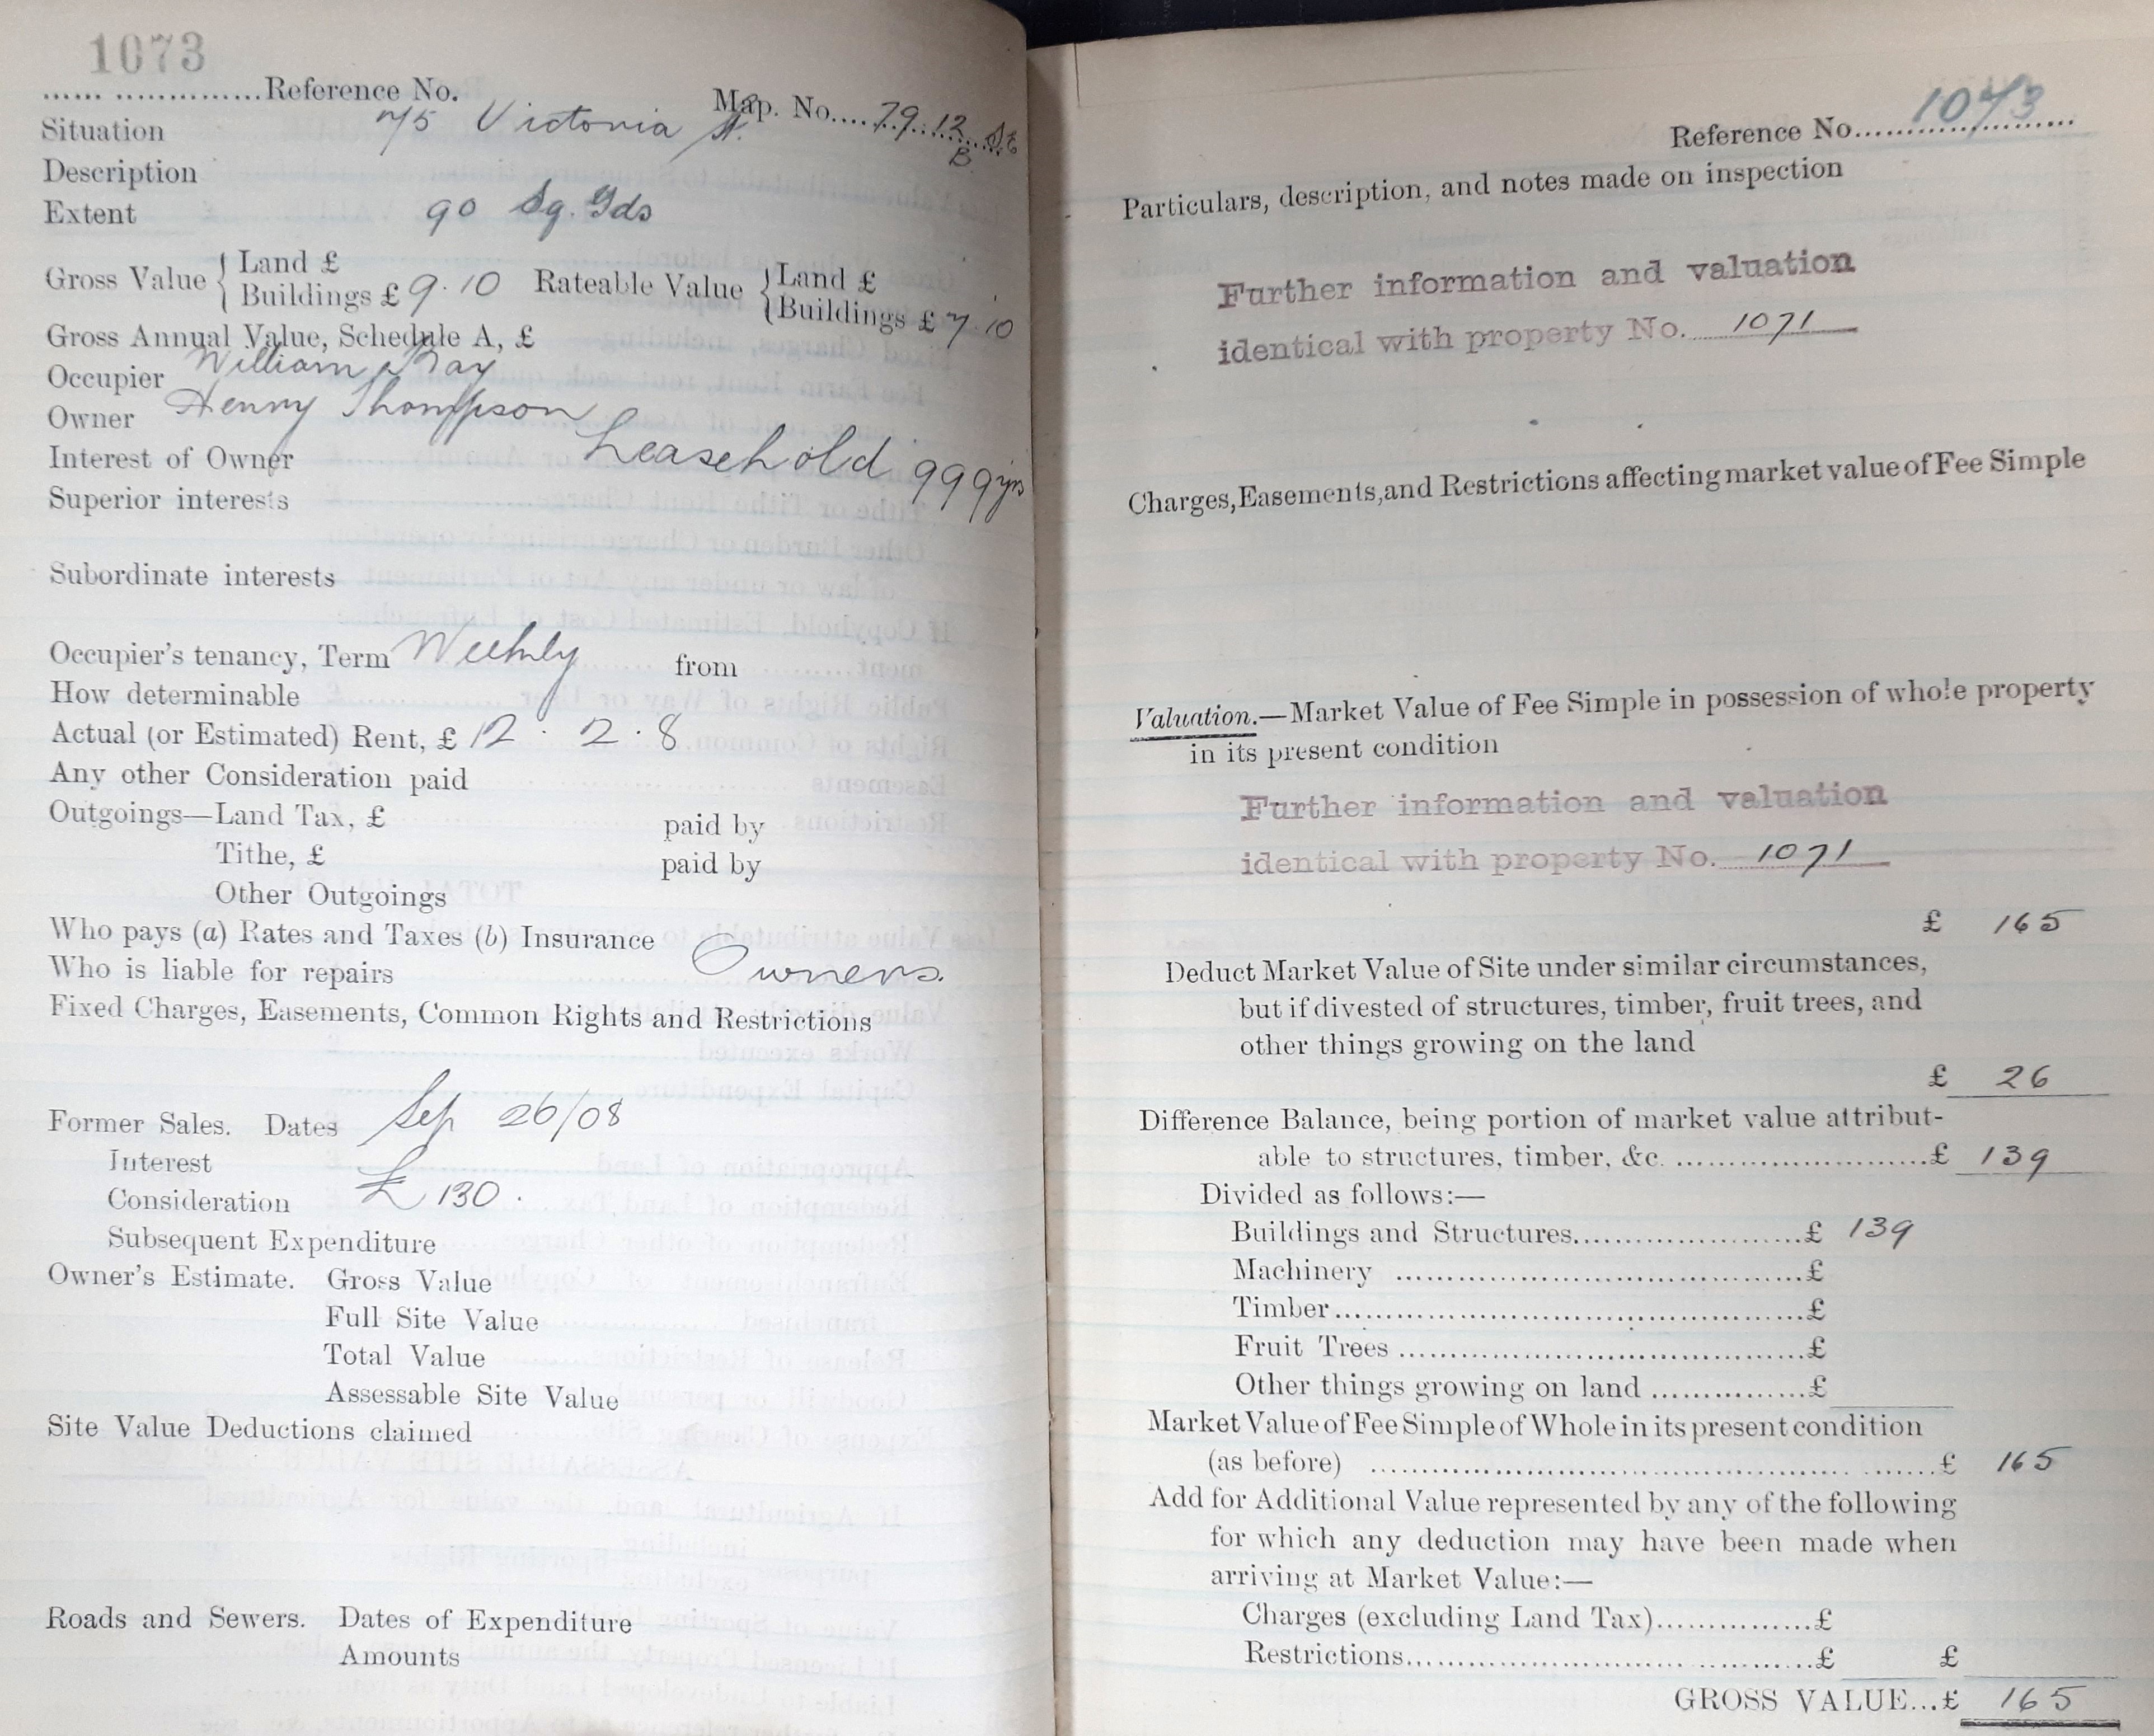 1073
Reference No.
Map. No. 79.12 SE
B
Situation 75 Victoria St.
Description
Extent 90 Sq. Yds
Gross Value { Land £
Buildings £ 9.10
Rateable Value { Land £
Buildings £ 7.10
Gross Annual Value, Schedule A, £
Occupier William Kay
Owner Henry Thompson
Interest of Owner Leasehold 999 yrs
Superior interests
Subordinate interests
Occupier's tenancy, Term Weekly from
How determinable
Actual (or Estimated) Rent, £ 12 . 2 . 8
Any other Consideration paid
Outgoings—Land Tax, £ paid by
Tithe, £ paid by
Other Outgoings
Who pays (a) Rates and Taxes (b) Insurance
Who is liable for repairs Owners.
Fixed Charges, Easements, Common Rights and Restrictions
Former Sales. Dates Sep 26/08
Interest
Consideration £130.
Subsequent Expenditure
Owner's Estimate. Gross Value
Full Site Value
Total Value
Assessable Site Value
Site Value Deductions claimed
Roads and Sewers. Dates of Expenditure
Amounts
Reference No. 1073
Particulars, description, and notes made on inspection
Further information and valuation
identical with property No. 1071
Charges, Easements, and Restrictions affecting market value of Fee Simple
Valuation.—Market Value of Fee Simple in possession of whole property
in its present condition
Further information and valuation
identical with property No. 1071
£ 165
Deduct Market Value of Site under similar circumstances,
but if divested of structures, timber, fruit trees, and
other things growing on the land
£ 26
Difference Balance, being portion of market value attribut-
able to structures, timber, &c. £ 139
Divided as follows:—
Buildings and Structures £ 139
Machinery £
Timber £
Fruit Trees £
Other things growing on land £
Market Value of Fee Simple of Whole in its present condition
(as before) £ 165
Add for Additional Value represented by any of the following
for which any deduction may have been made when
arriving at Market Value:—
Charges (excluding Land Tax) £
Restrictions £ £
GROSS VALUE...£ 165